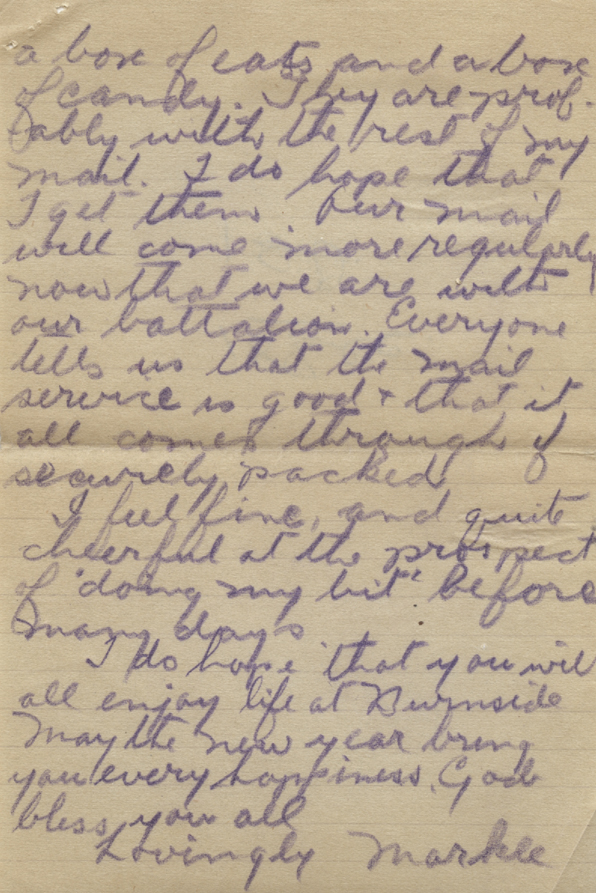 a box of eats and a box
of candy. They are prof-
ably with the rest of my
mail. I do hope that
I get them. Our mail
will come more regularly
now that we are with
our battalion. Everyone
tells us that the mail
service is good & that it
all comes through if
securely packed
I feel fine, and quite
cheerful at the prospect
of "doing my bit" before
many days
I do hope that you will
all enjoy life at Burnside
May the new year bring
you every happiness. God
bless you all
Lovingly Markee